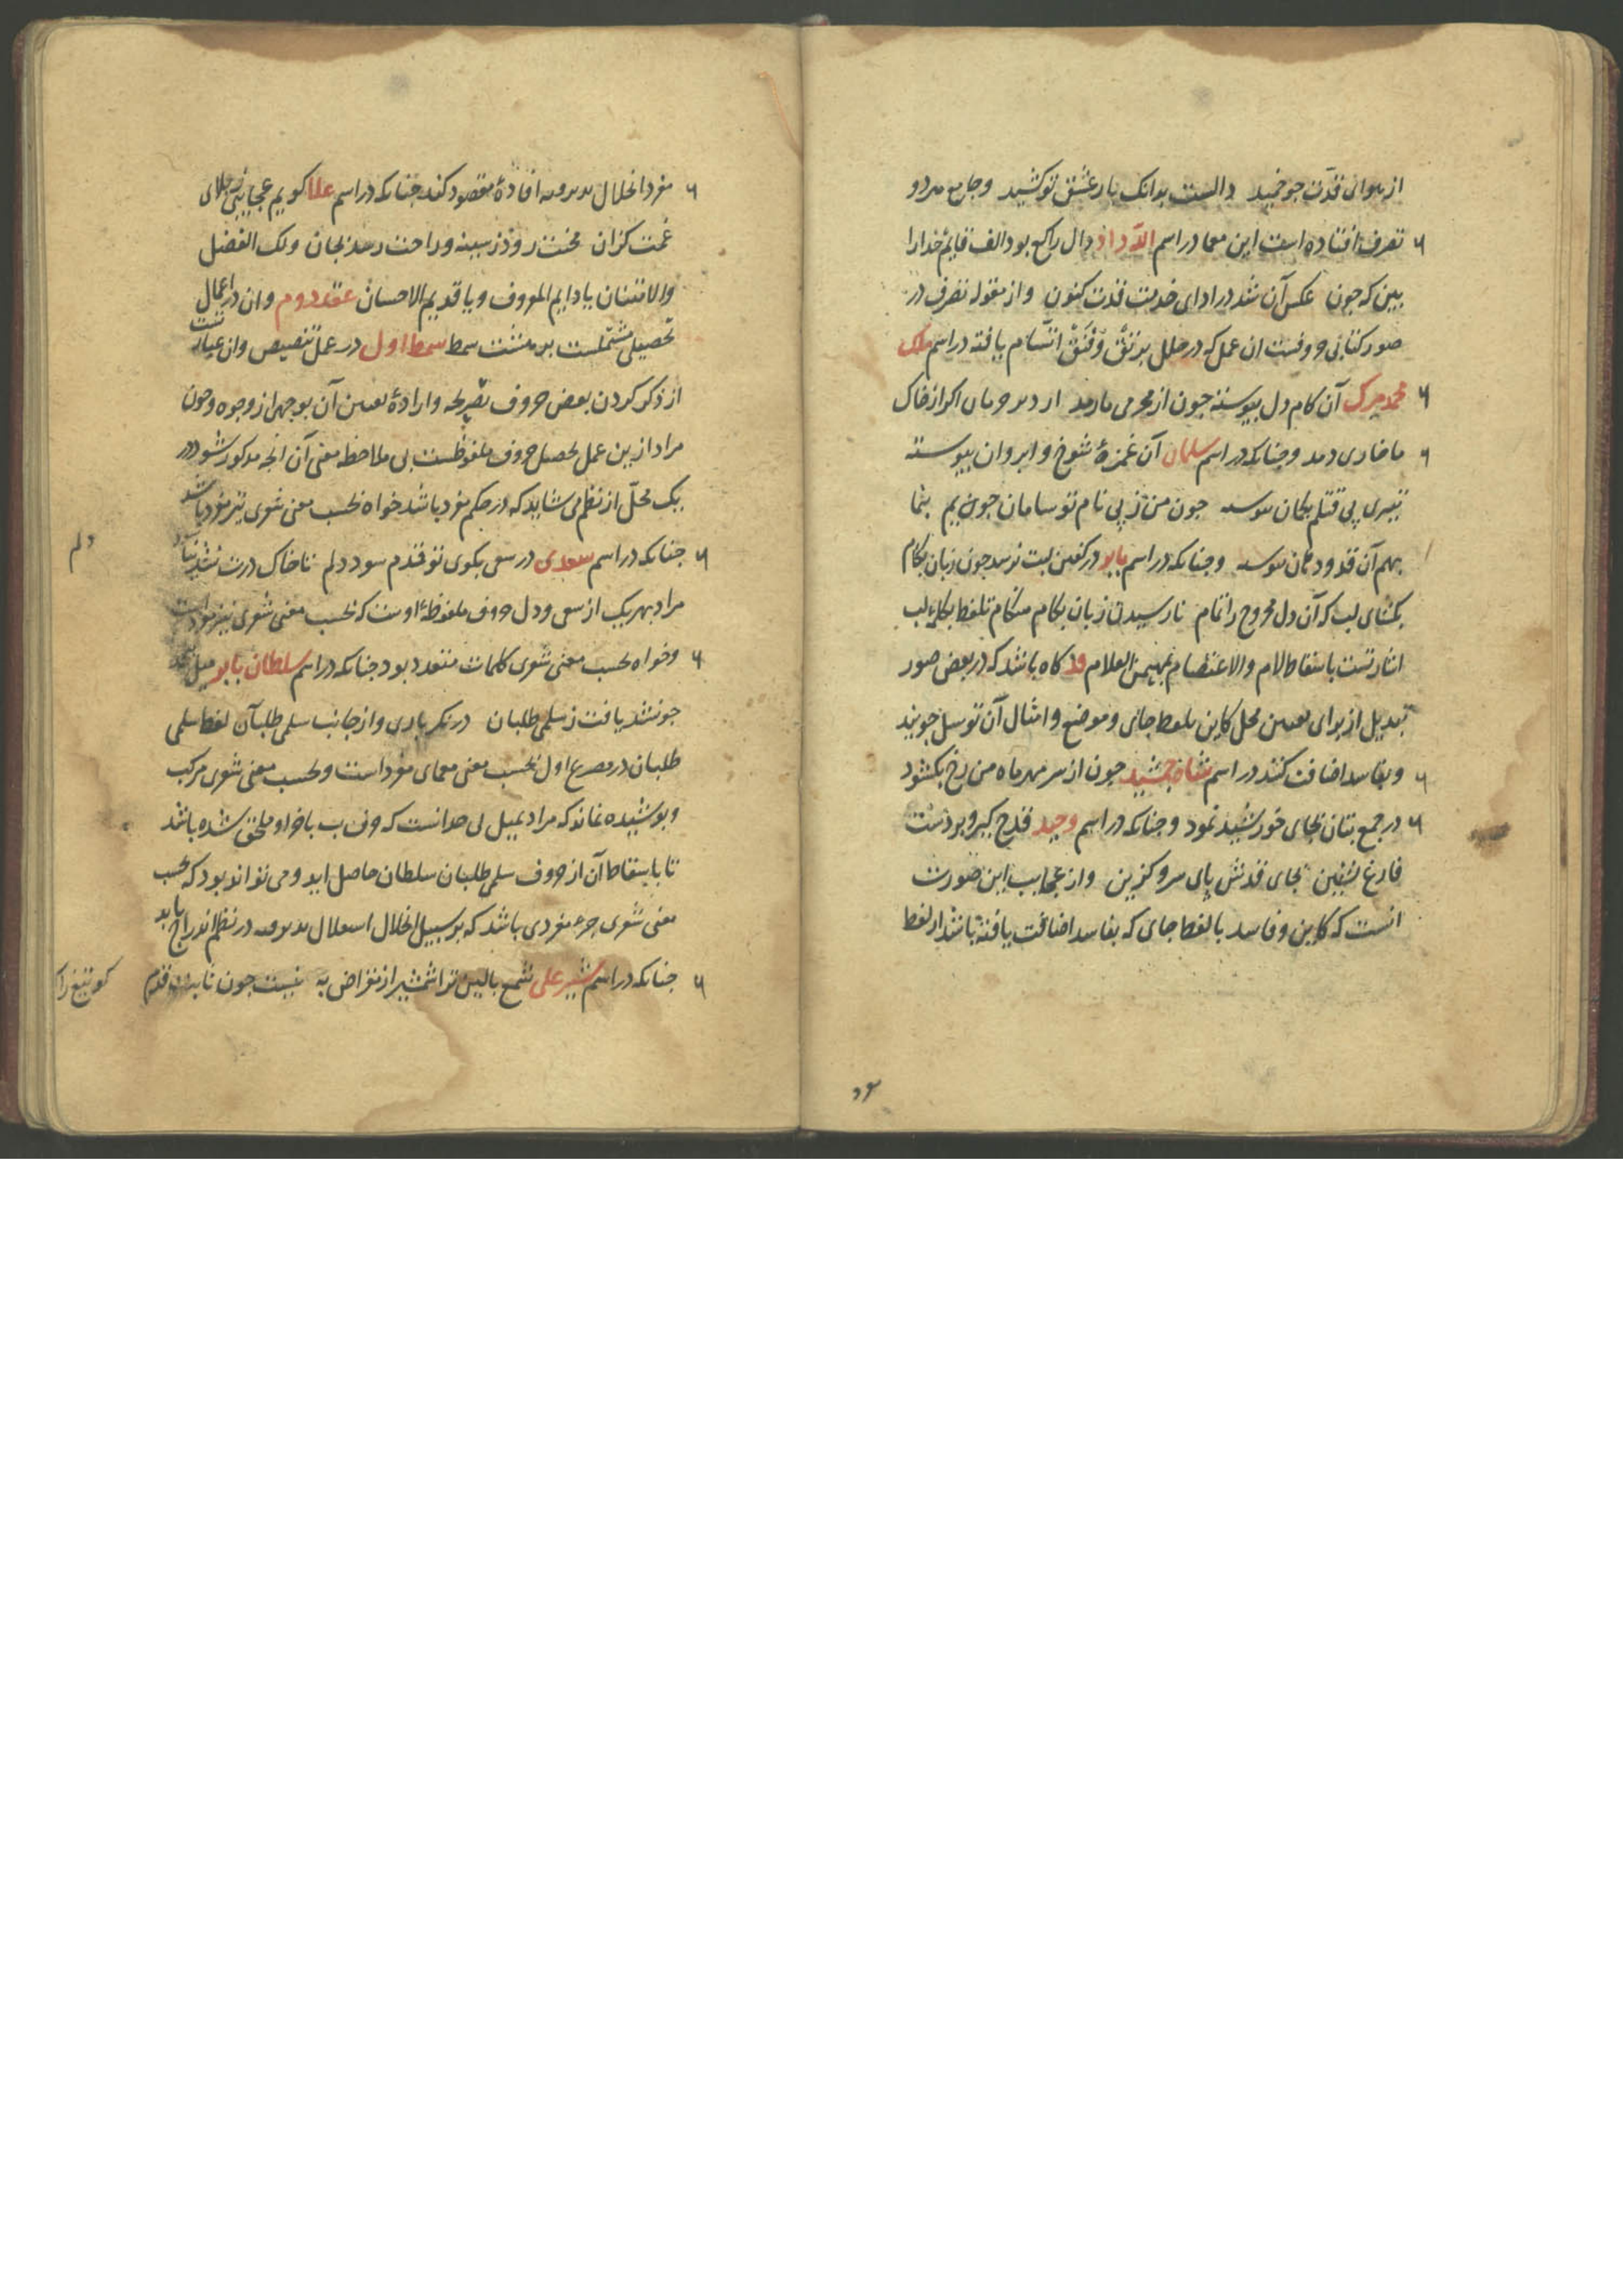 از هوای قدت چو خمید دالست بدانک بار عشق تو کشید و جامع هر دو
تصرف افتاده است این معما در اسم الله داد دال راکع بود الف قایم خدارا
ببین که چون عکس آن شد در ادای خدمت قدت کنون و از مقوله تصرف در
صور کتابی حروفست ان عمل که در حلل برتق و فتق اتسام یافته در اسم ملک
محمد میرک آن کام دل پیوسته چون از محرمی مارمد از دیر حرمان اکر از خاک
ما خاری دمد و چنانکه در اسم سلمان آن غمزهٔ شوخ و ابروان پیوسته
تیری پی قتلم بکمان پیوسته چون من ز پی نام تو سامان جویم بنما
بهم آن قد و دهان پیوسته و چنانکه در اسم بابر در کفتن لبت نرسد چون زبان بکام
بکشای لب که آن دل مجروح را تمام نارسیدن زبان بکام هنکام تلفظ بکلمه لب
اشارتست باسقاط لام والاعتصام بمهیمن العلام و کاه باشد که در بعض صور
تبدیل از برای تعیین محل کاین بلفظ جای و موضع و امثال آن توسل جویند
و بفاسد اضافت کنند در اسم شاه جمشید چون از سر مهر ماه من رخ بکشود
در جمع بتان بجای خورشید نمود و چنانکه در اسم وحید قدح کیر و بر دست
فارغ نشین بجای قدش پای سرو کزین و از عجایب این صورت
انست که کاین و فاسد با لفظ جای که بفاسد اضافت یافته باشد از لفظ
مفرد انحلال پذیرفته افادهٔ مقصود کند چنانکه در اسم علا کویم عجایبی ز جلای
غمت کزان محنت رود ز سینه و راحت رسد بجان ولک الفضل
والامتنان یا دایم المعروف و یا قدیم الاحسان عقد دوم و ان در اعمال
تحصیلی مشتملست بر هشت سمط سمط اول در عمل تنصیص و ان عبارتست
از ذکر کردن بعض حروف بصریحه و ارادهٔ تعیین آن بوجهی از وجوه و چون
مراد ازین عمل تحصیل حروف ملفوظست بی ملاحظه معنی آن انچه مذکور شود در
یک محل از نظم می شاید که در حکم مفرد باشد خواه بحسب معنی شعری نیز مفرد باشد
چنانکه در اسم سعدی در سعی بکوی تو قدم سود دلم تا خاک درت نشد نیاسود
دلم
مراد بهریک از سعی و دل حروف ملفوظهٔ اوست که بحسب معنی شعری نیز مفرد است
و خواه بحسب معنی شعری کلمات متعدد بود چنانکه در اسم سلطان بابر میل
چو نشد یافت ز سلمی طلبان در نکر باری و از جانب سلمی طلبان لفظ سلمی
طلبان در مصرع اول بحسب معنی معمای مفرد است و بحسب معنی شعری مرکب
و پوشیده نماند که مراد بمیل بی حد انست که حرف ب باخر او ملحق شده باشد
تا باسقاط آن از حروف سلمی طلبان سلطان حاصل اید و می تواند بود که بحسب
معنی شعری جزء مفردی باشد که بر سبیل انحلال استقلال پذیرفته در نظم اندراج یابد
چنانکه در اسم شیر علی شمع بالین ترا شمشیر از مقراض به نیست چون ثابت قدم
کو تیغ را